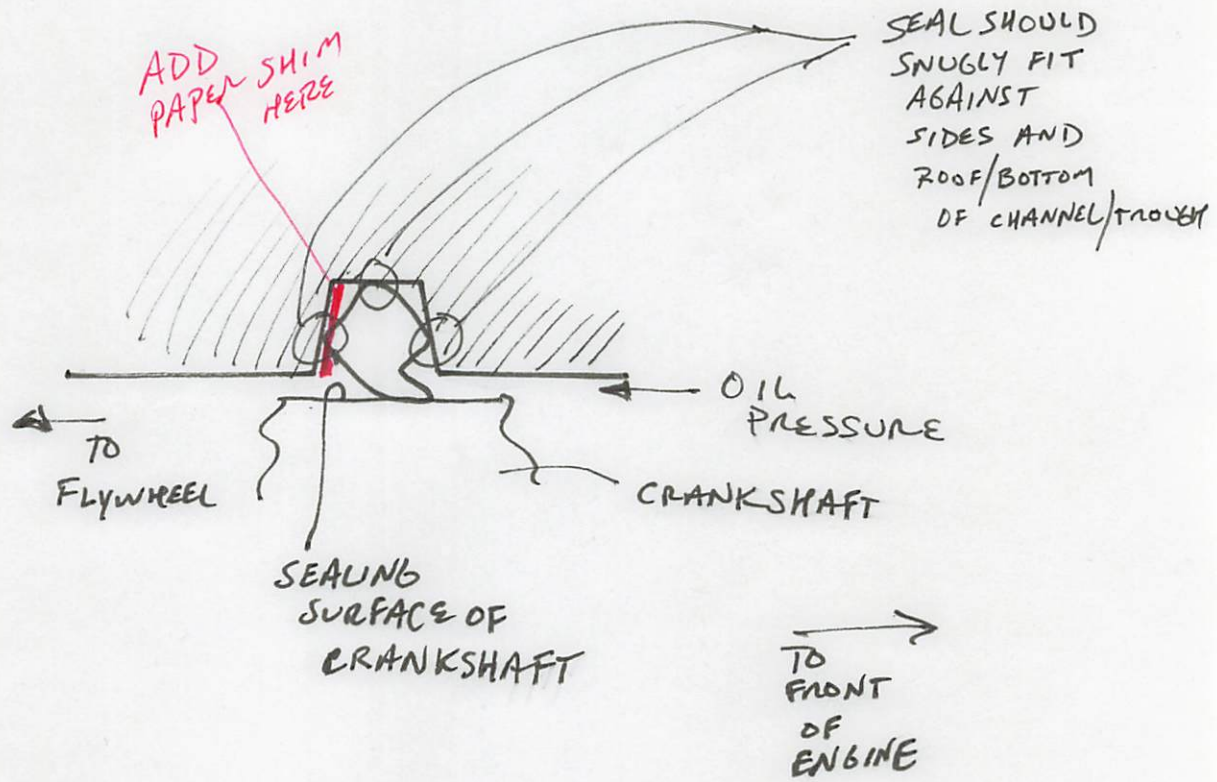 ADD
PAPER SHIM
HERE
SEAL SHOULD
SNUGLY FIT
AGAINST
SIDES AND
ROOF/BOTTOM
OF CHANNEL/TROUGH
OIL
PRESSURE
TO
FLYWHEEL
CRANKSHAFT
SEALING
SURFACE OF
CRANKSHAFT
TO
FRONT
OF
ENGINE